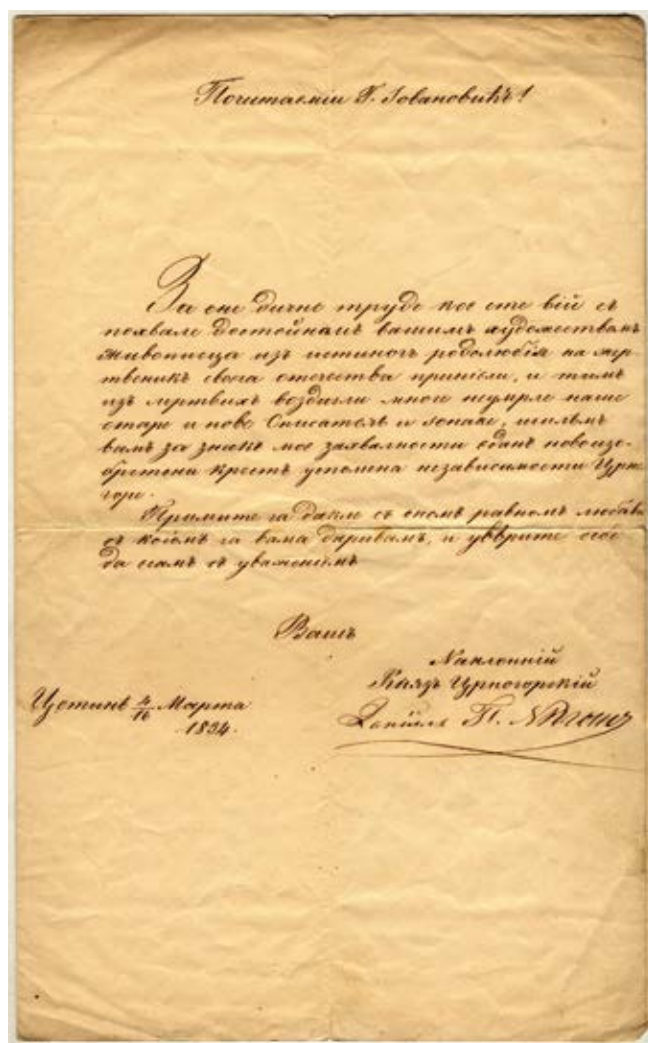 Почитаемıи Г. Јовановићъ!
За оне дичне труде кое сте вıй съ
похвале достойнамъ вашимъ художествамъ
живописца изъ истиногъ родолюбıя на жр-
твеникъ свога отечества принıели, и тимъ
изъ мртвихъ воздигли многе неумрле наше
старе и нове Списателѣ и Јонаке, шильмъ
вамъ за знакъ мое захвалности еданъ новоизо-
бретени крестъ успомена независимости Црне
горе.
Примите га дакле съ ономъ равномъ любавı
съ коıомъ га вама даривамъ, и увѣрите себе
да самъ съ уваженıемъ
Вашъ
Наклонıй
Князъ Црногорскıй
Данıилъ П. Нѣгошъ
Цетинѣ 4/16 Марта
1854.